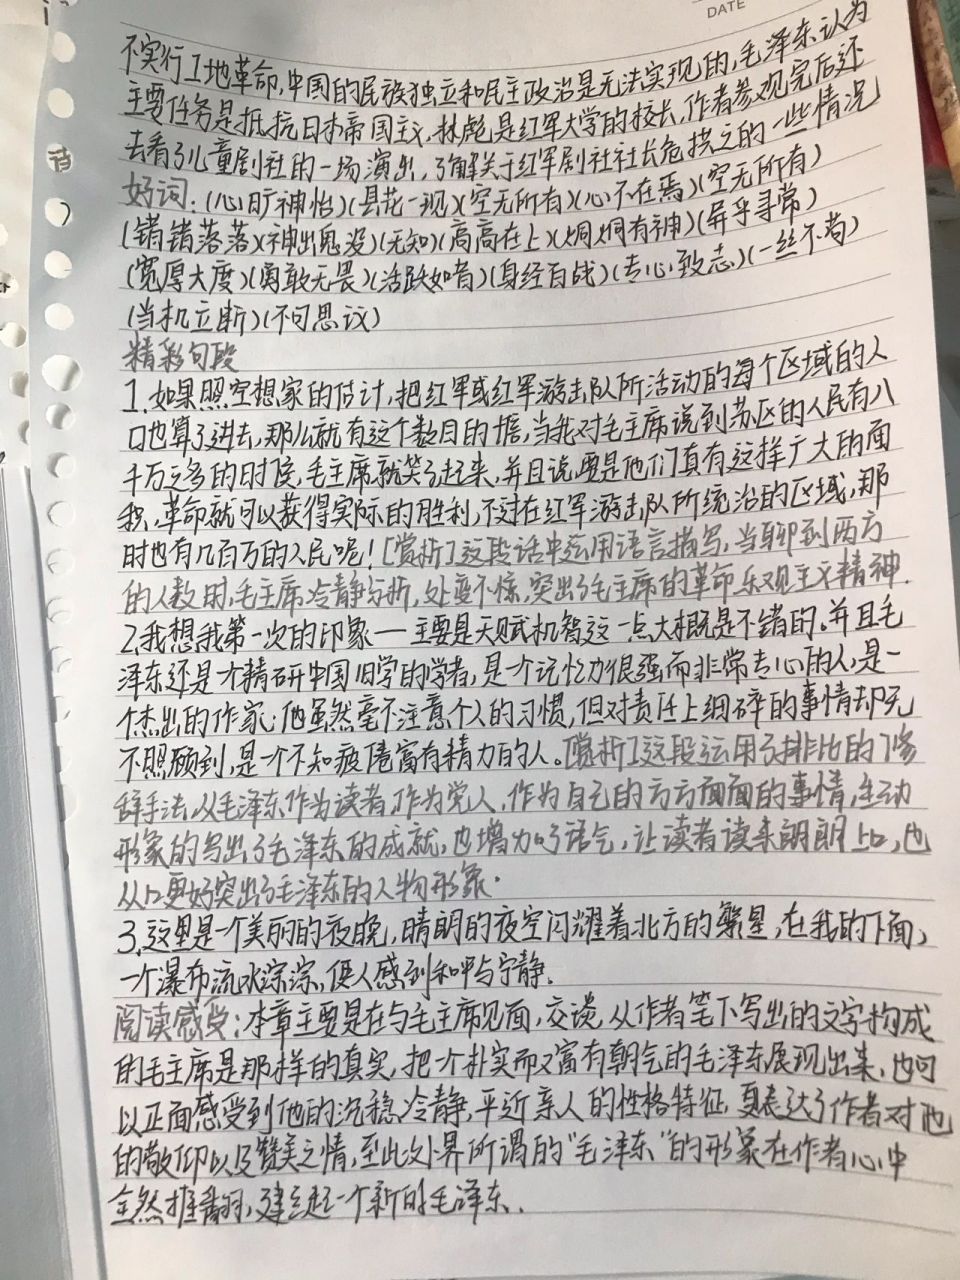 DATE
不实行土地革命,中国的民族独立和民主政治是无法实现的,毛泽东认为
主要任务是抵抗日本帝国主义,林彪是红军大学的校长,作者参观完后还
去看了儿童剧社的一场演出,了解关于红军剧社社长危拱之的一些情况
好词:(心旷神怡)(昙花一现)(空无所有)(心不在焉)(空无所有)
(错错落落)(神出鬼没)(无知)(高高在上)(炯炯有神)(异乎寻常)
(宽厚大度)(勇敢无畏)(活跃如者)(身经百战)(专心致志)(一丝不苟)
(当机立断)(不可思议)
精彩句段
1.如果照空想家的估计,把红军或红军游击队所活动的每个区域的人
口也算了进去,那么就有这个数目的,当我对毛主席说到苏区的人民有八
千万之多的时候,毛主席就笑了起来,并且说,要是他们真有这样广大的面
积,革命就可以获得实际的胜利,不过在红军游击队所统治的区域,那
时也有几百万的人民呢![赏析]这段话中运用语言描写,当聊到两方
的人数时,毛主席冷静分析,处变不惊,突出了毛主席的革命乐观主义精神.
2.我想我第一次的印象——主要是天赋机智这一点大概是不错的。并且毛
泽东还是个精研中国旧学的学者,是个记忆力很强而非常专心的人,是一
个杰出的作家;他虽然毫不注意个人的习惯,但对责任上细碎的事情却无
不照顾到,是一个不知疲倦富有精力的人。[赏析]这段运用了排比的修
辞手法,从毛泽东作为读者,作为党人,作为自己的方方面面的事情,生动
形象的写出了毛泽东的成就,也增加了语气,让读者读来朗朗上口,也
从口更好突出了毛泽东的人物形象.
3.这里是一个美丽的夜晚,晴朗的夜空闪耀着北方的繁星,在我的下面,
一个瀑布流水淙淙,使人感到和平与宁静.
阅读感受:本章主要是在与毛主席见面,交谈,从作者笔下写出的文字构成
的毛主席是那样的真实,把一个朴实而又富有朝气的毛泽东展现出来,也可
以正面感受到他的沉稳,冷静,平近亲人的性格特征,更表达了作者对他
的敬仰以及赞美之情,至此外界所谓的"毛泽东"的形象在作者心中
全然推翻,建立起一个新的毛泽东.